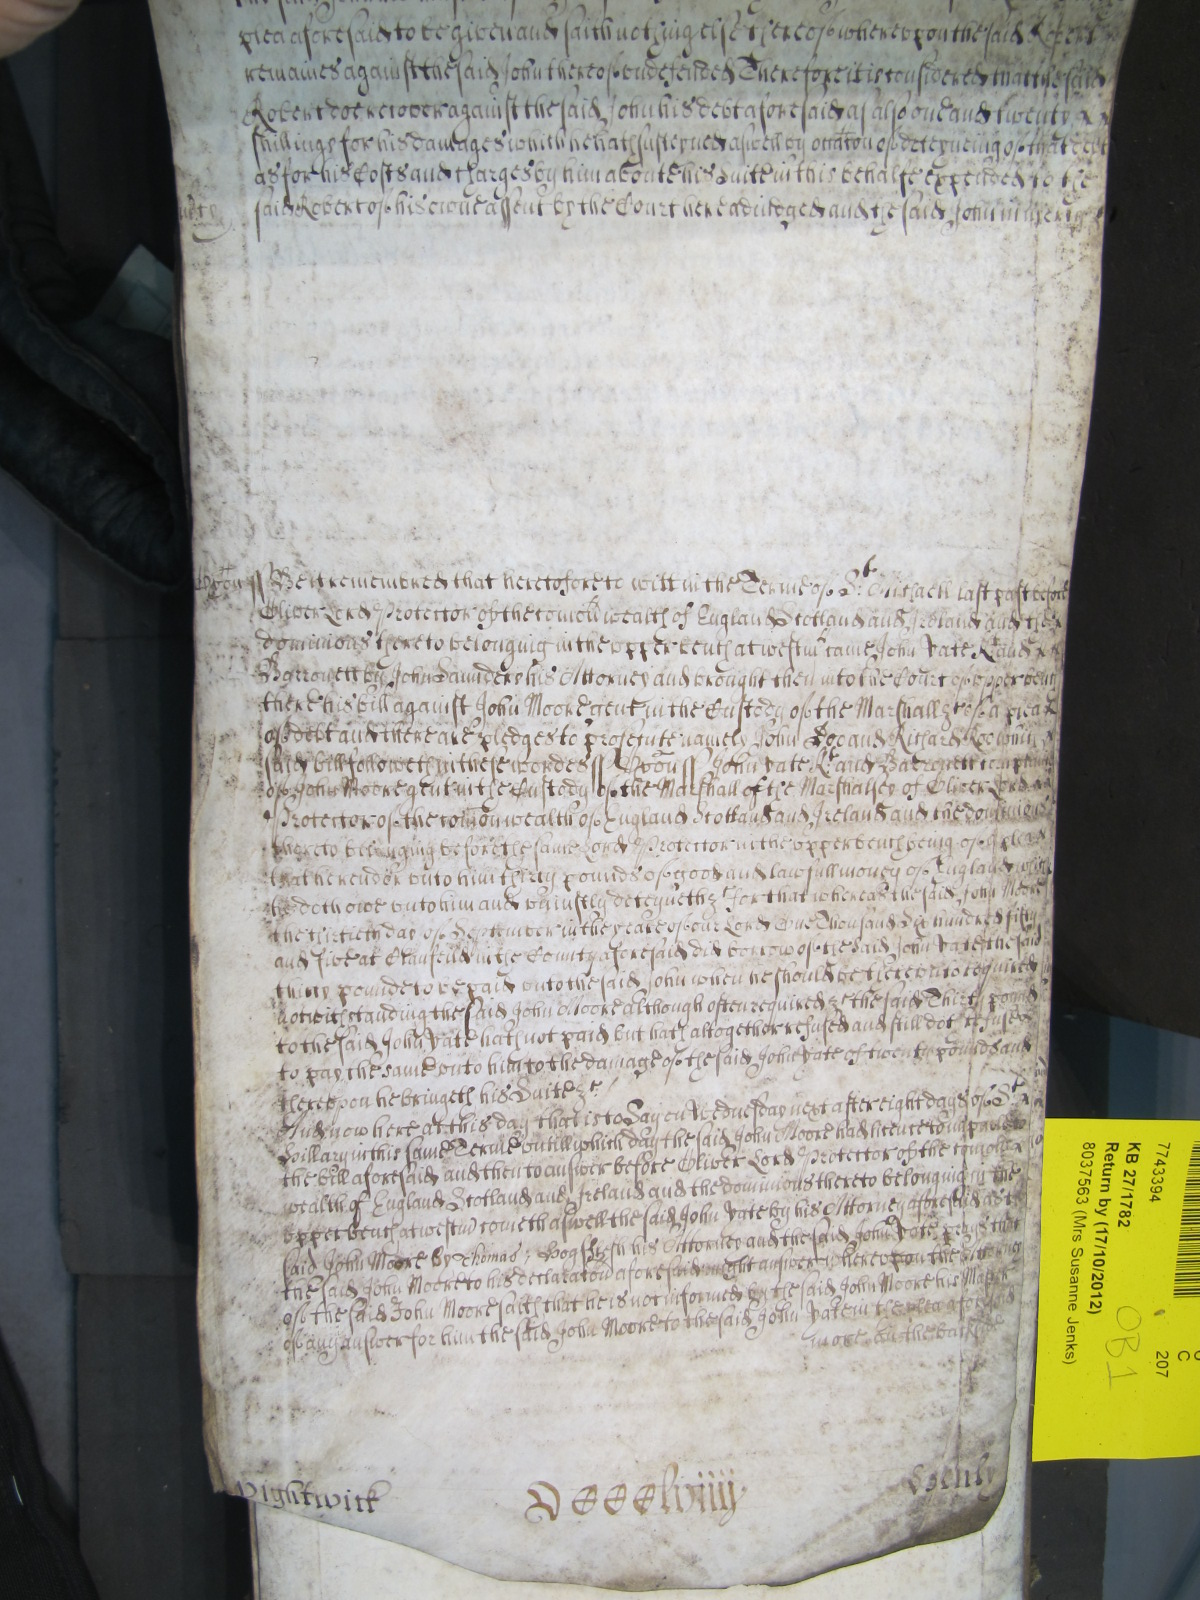 plea aforesaid to be given and saith nothing else thereof whereupon the said Robert
remaines against the said John thereof undefended Therefore it is considered that the said
Robert doe recover against the said John his debt aforesaid as also one and twenty
shillings for his damages which he hath susteyned aswell by occacon of deteyneing of that debt
as for his Costs and charges by him about his Suite in this behalfe expended to the
said Robert of his owne assent by the Court here adiudged and the said John in mercy &c
Be it remembred that heretofore to witt in the Terme of St Michaell last past before
Oliver Lord Protector of the comon wealth of England Scotland and Ireland and the
dominions thereto belonging in the upper bench at westmr came John Pate Kt and
Barronett by John Saunders his Attorney and brought then into the Court of upper bench
there his bill against John Moore gent in the Custody of the Marshall &c of a plea
of debt and there are pledges to prosecute namely John Doe and Richard Roe which
said bill followeth in these wordes ss John Pate Kt and Barronett complaines
of John Moore gent in the Custody of the Marshall of the Marshalsey of Oliver Lord
Protector of the comonwealth of England Scotland and Ireland and the dominions
thereto belonging before the same Lord Protector in the upper bench being of a plea
that he render unto him thirty pounds of good and lawfull money of England which
he doth owe unto him and uniustly deteyneth &c for that whereas the said John Moore
the thirtieth day of September in the yeare of our Lord One Thousand Six hundred fifty
and five at in the County aforesaid did borrow of the said John Pate the said
thirty pounds to be paid unto the said John when he should be thereunto required
notwithstanding the said John Moore although often required &c the said Thirty pounds
to the said John Pate hath not paid but hath altogether refused and still doth refuse
to pay the same unto him to the damage of the said John Pate of twenty pounds and
thereupon he bringeth his Suite &c
And now here at this day that is to Say on Wednesday next after eight dayes of St
Hillary in this same Terme untill which day the said John Moore had licence to imparle to
the bill aforesaid and then to answer before Oliver Lord Protector of the comon
wealth of England Scotland and Ireland and the dominions thereto belonging in the
upper bench at westmr cometh aswell the said John Pate by his Attorney aforesaid as the
said John Moore by Thomas his Attorney and the said John Pate prays that
the said John Moore to his declaracon aforesaid might answer whereupon the Attorney
of the said John Moore saith that he is not informed by the said John Moore his Master
of any answer for him the said John Moore to the said John Pate in the plea aforesaid
more on the back
Dccccluiiij
7743394
KB 27/1782
Return by (17/10/2012)
8037563 (Mrs Susanne Jenks)
C
207
OB 1